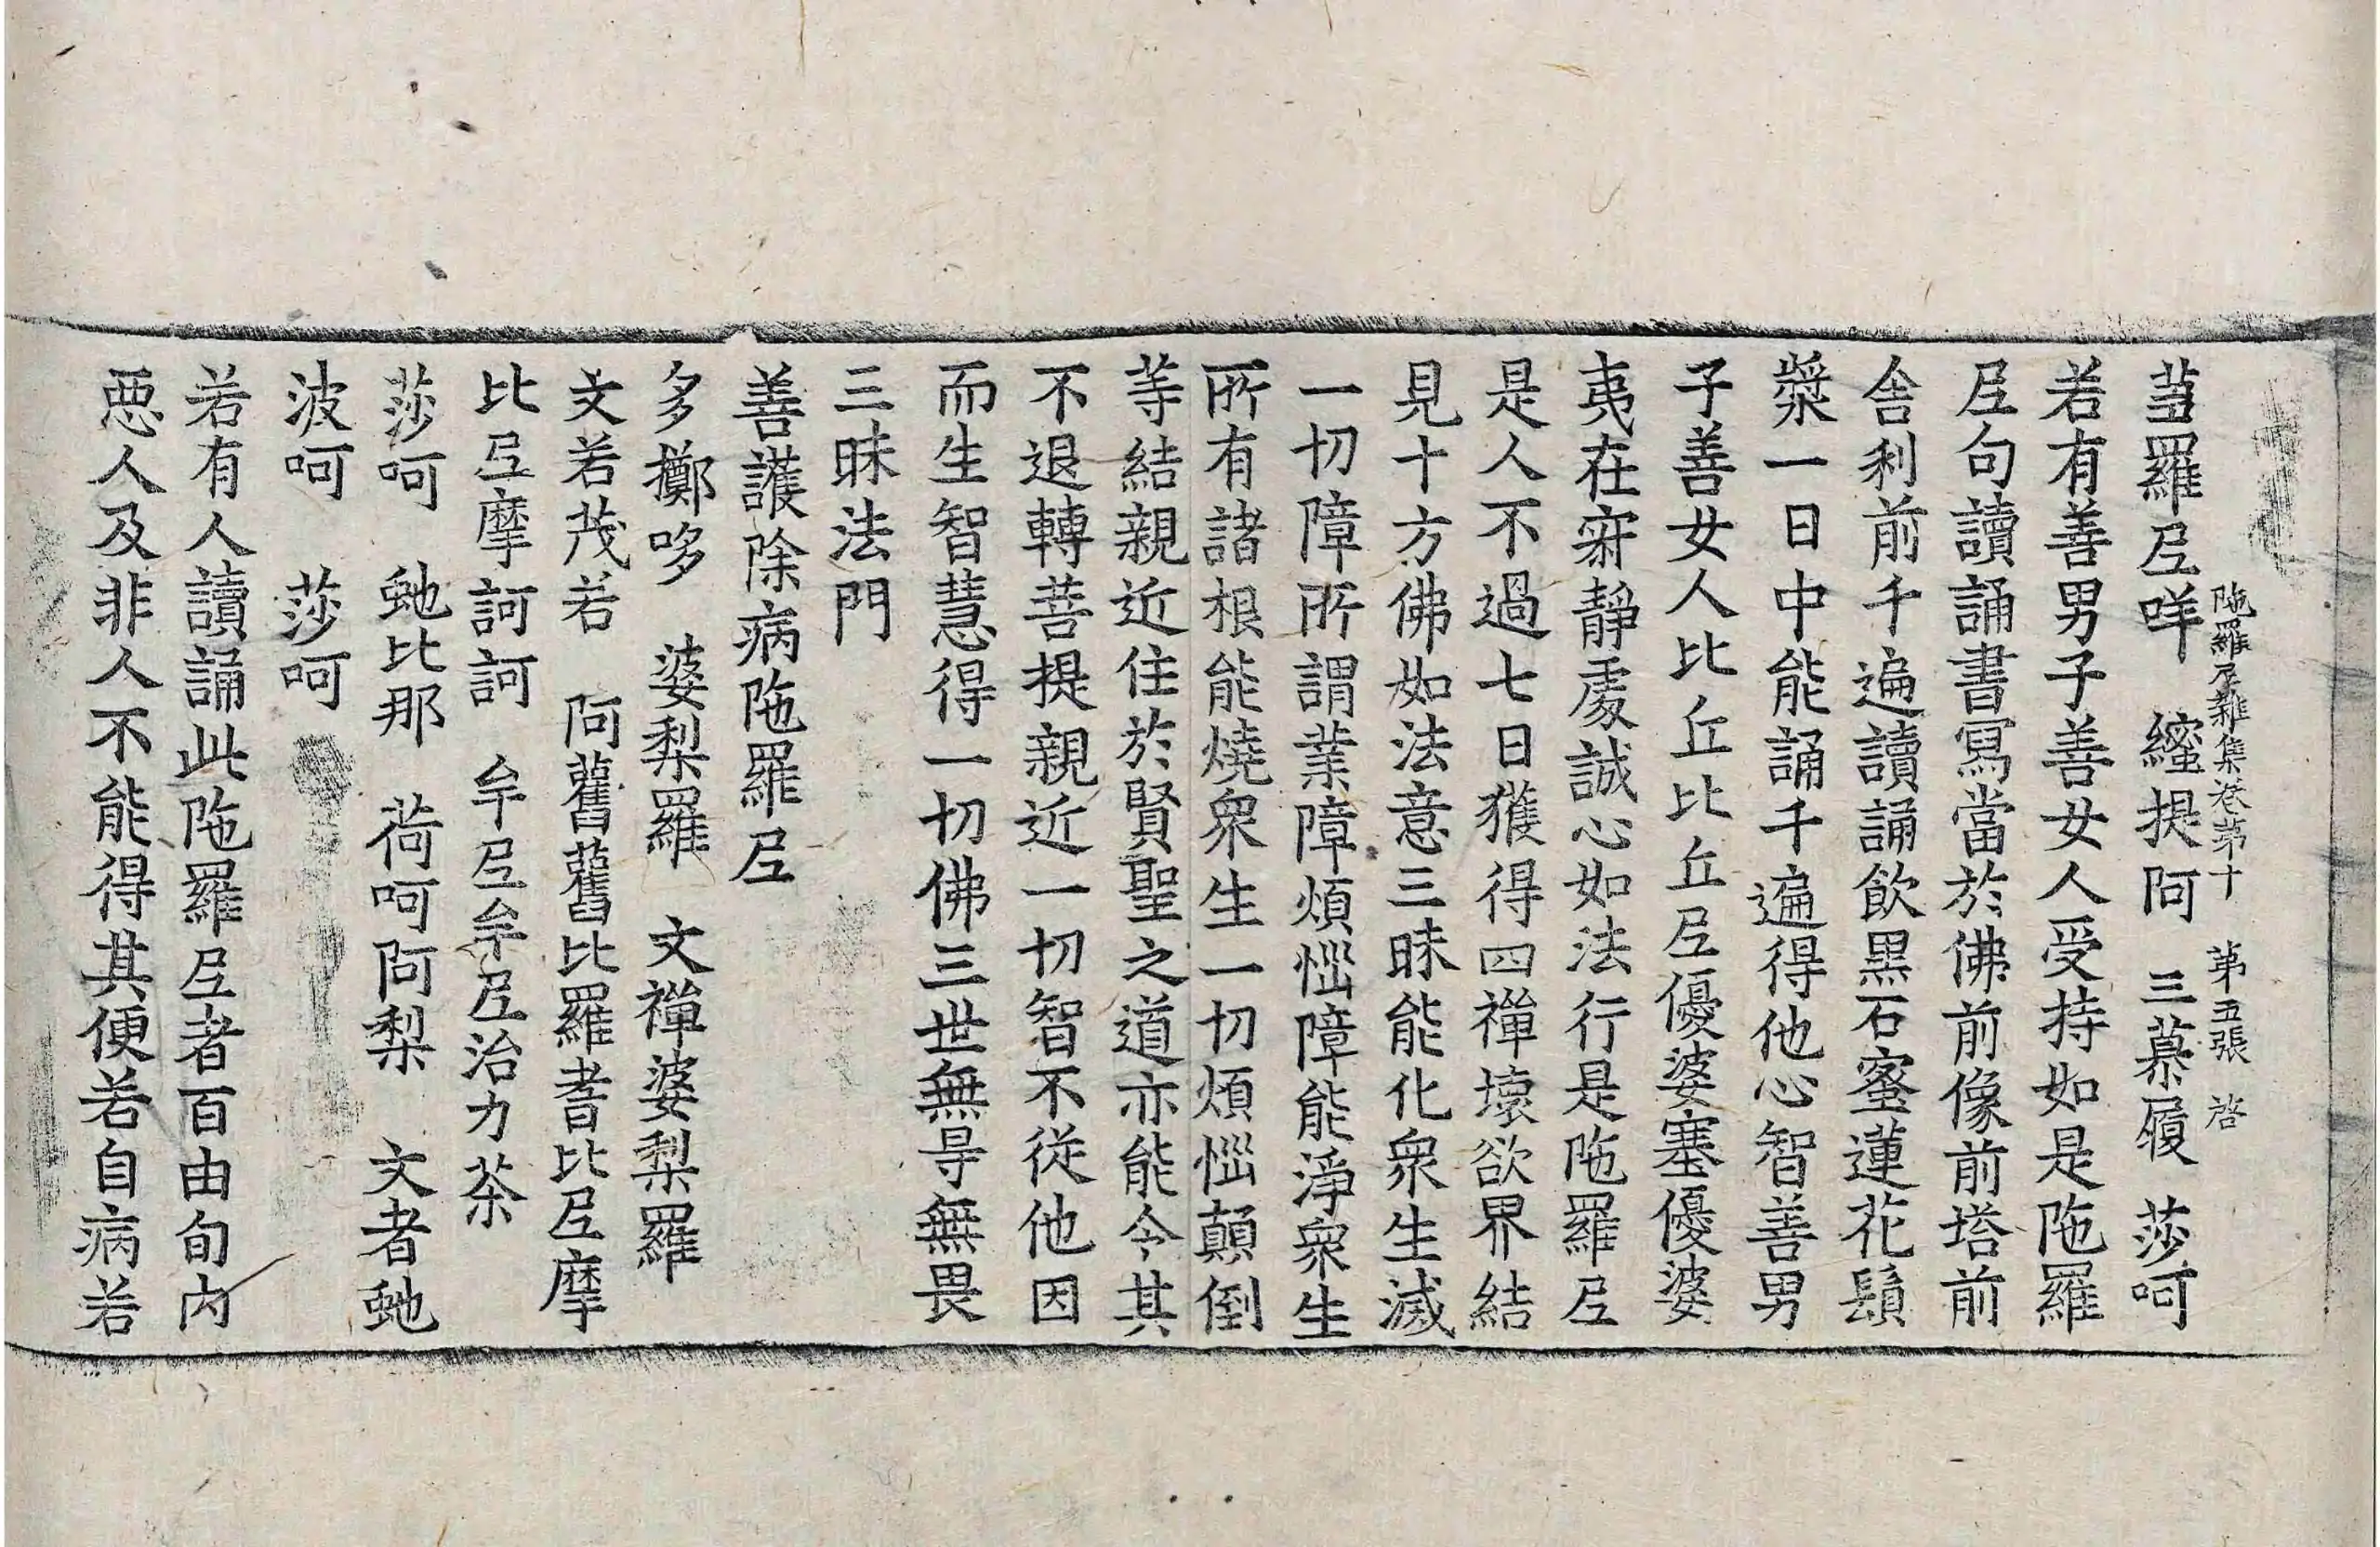 陁羅尼雜集卷苐十 苐五張 啓
羅𡰱咩 繀提阿 三慕履 莎呵
若有善男子善女人受持如是陁羅
𡰱句讀誦書冩當於佛前像前塔前
舎利前千遍讀誦飲黒石蜜蓮花鬚
漿一日中能誦千遍得他心智善男
子善女人比丘比丘𡰱優婆塞優婆
夷在寂靜處誠心如法行是陁羅𡰱
是人不過七日獲得四禪壞欲界結
見十方佛如法意三昧能化衆生滅
一切障所謂業障煩惱障能淨衆生
所有諸根能燒衆生一切煩惱顛倒
等結親近住於賢聖之道亦能令其
不退轉菩提親近一切智不從他因
而生智慧得一切佛三世無㝵無畏
三昧法門
善護除病陁羅𡰱
多擲哆 婆梨羅 文禪婆梨羅
文若茂若 阿舊舊比羅耆比𡰱摩
比𡰱摩訶訶 牟𡰱牟𡰱治力荼
莎呵 虵比那 荷呵阿梨 文者虵
波呵 莎呵
若有人讀誦此陁羅𡰱者百由旬内
惡人及非人不能得其便若自病若